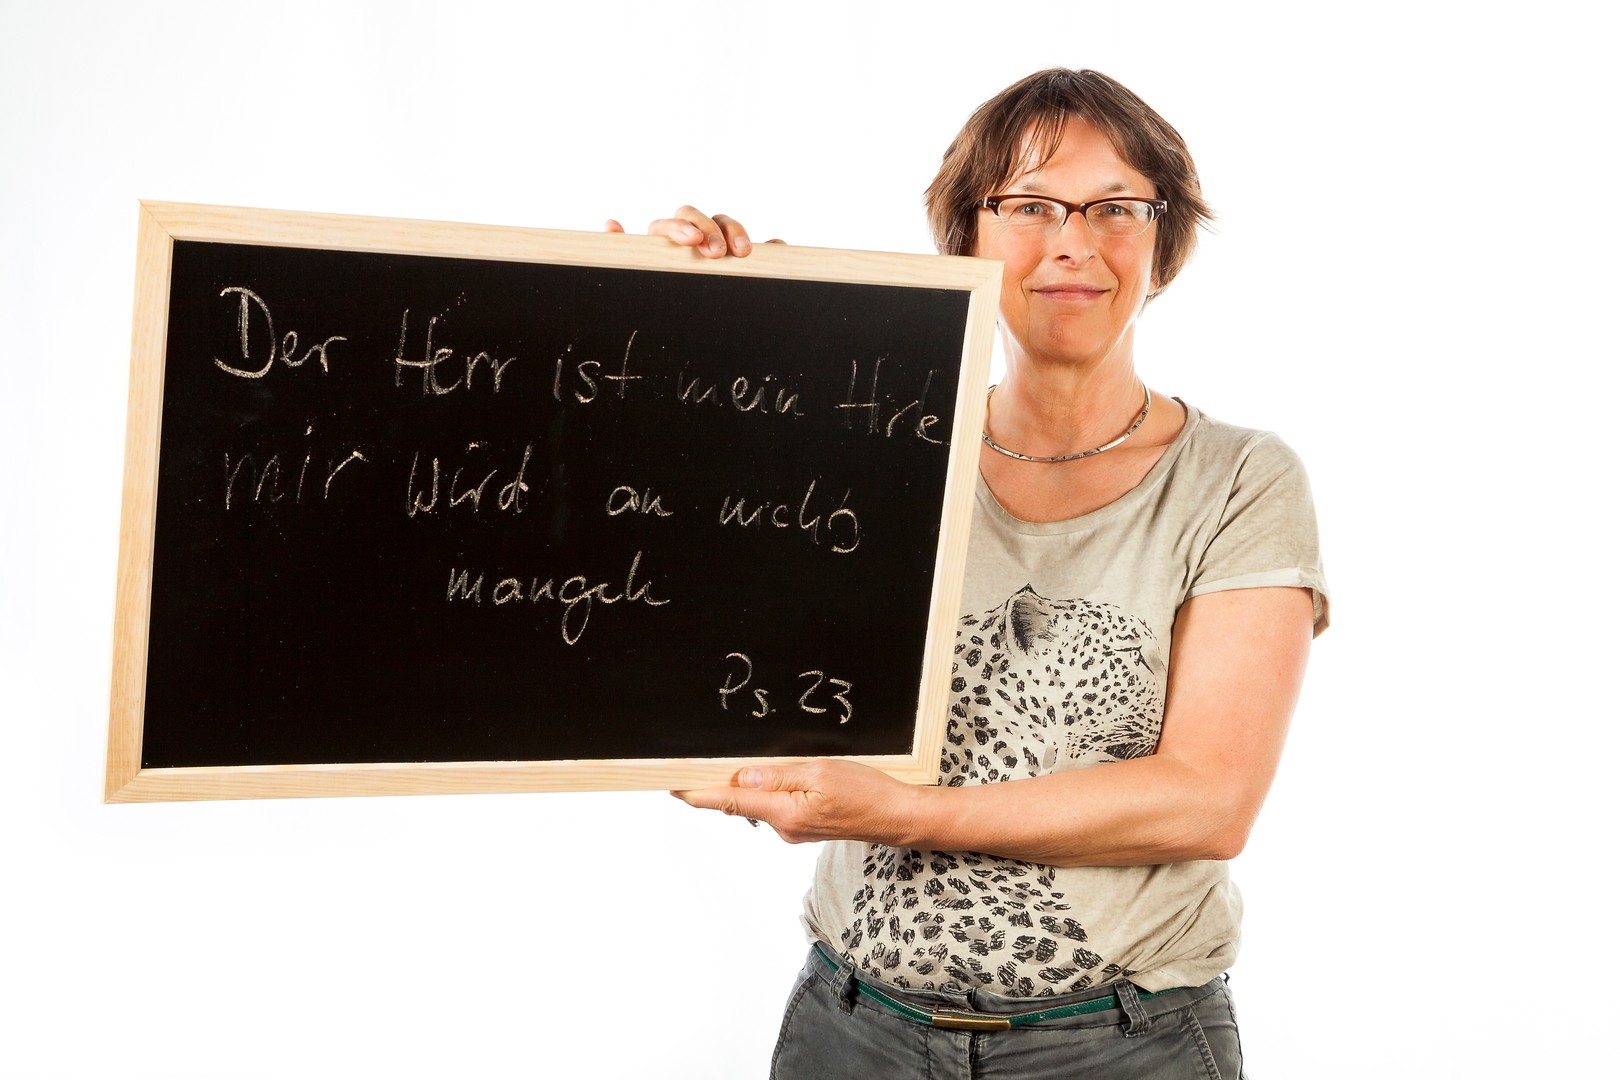 Der Herr ist mein Hirte
mir wird an nichts
mangeln
Ps. 23